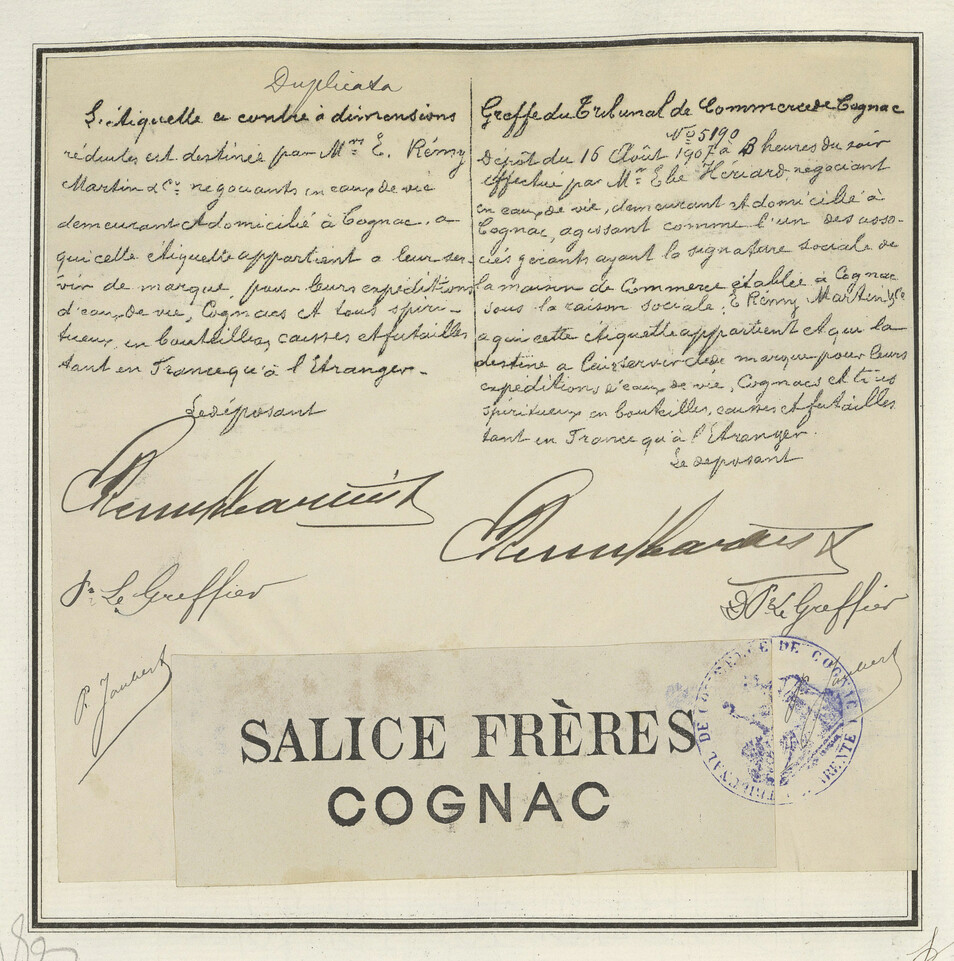 Duplicata
L'étiquette ci contre à dimensions
réduites est destinée par Mrs E. Rémy
Martin & Cie négociants en eaux de vie
demeurant et domicilié à Cognac, a
qui cette étiquette appartient a leur ser-
vir de marque, pour leurs expéditions
d'eaux de vie, Cognacs et tous spiri-
tueux, en bouteilles, caisses et futailles
tant en France qu'à l'Etranger.
Le déposant
Remy Martin
Pr Le Greffier
P. Joubert
Greffe du Tribunal de Commerce de Cognac
No 5190
Dépôt du 16 Août 1907 à 3 heures du soir
effectué par Mr Elie Hériard, négociant
en eaux de vie, demeurant et domicilié à
Cognac, agissant comme l'un des asso-
ciés gérants ayant la signature sociale de
la maison de Commerce établie à Cognac
sous la raison sociale, E Rémy Martin & Cie
a qui cette étiquette appartient et qui la
destine a lui servir de marque pour leurs
expéditions d'eaux de vie, Cognacs et tous
spiritueux en bouteilles, caisses et futailles
tant en France qu'à l'Etranger.
Le déposant
Remy Martin
Pr Le Greffier
SALICE FRÈRES
COGNAC
TRIBUNAL DE COMMERCE DE COGNAC
CHARENTE